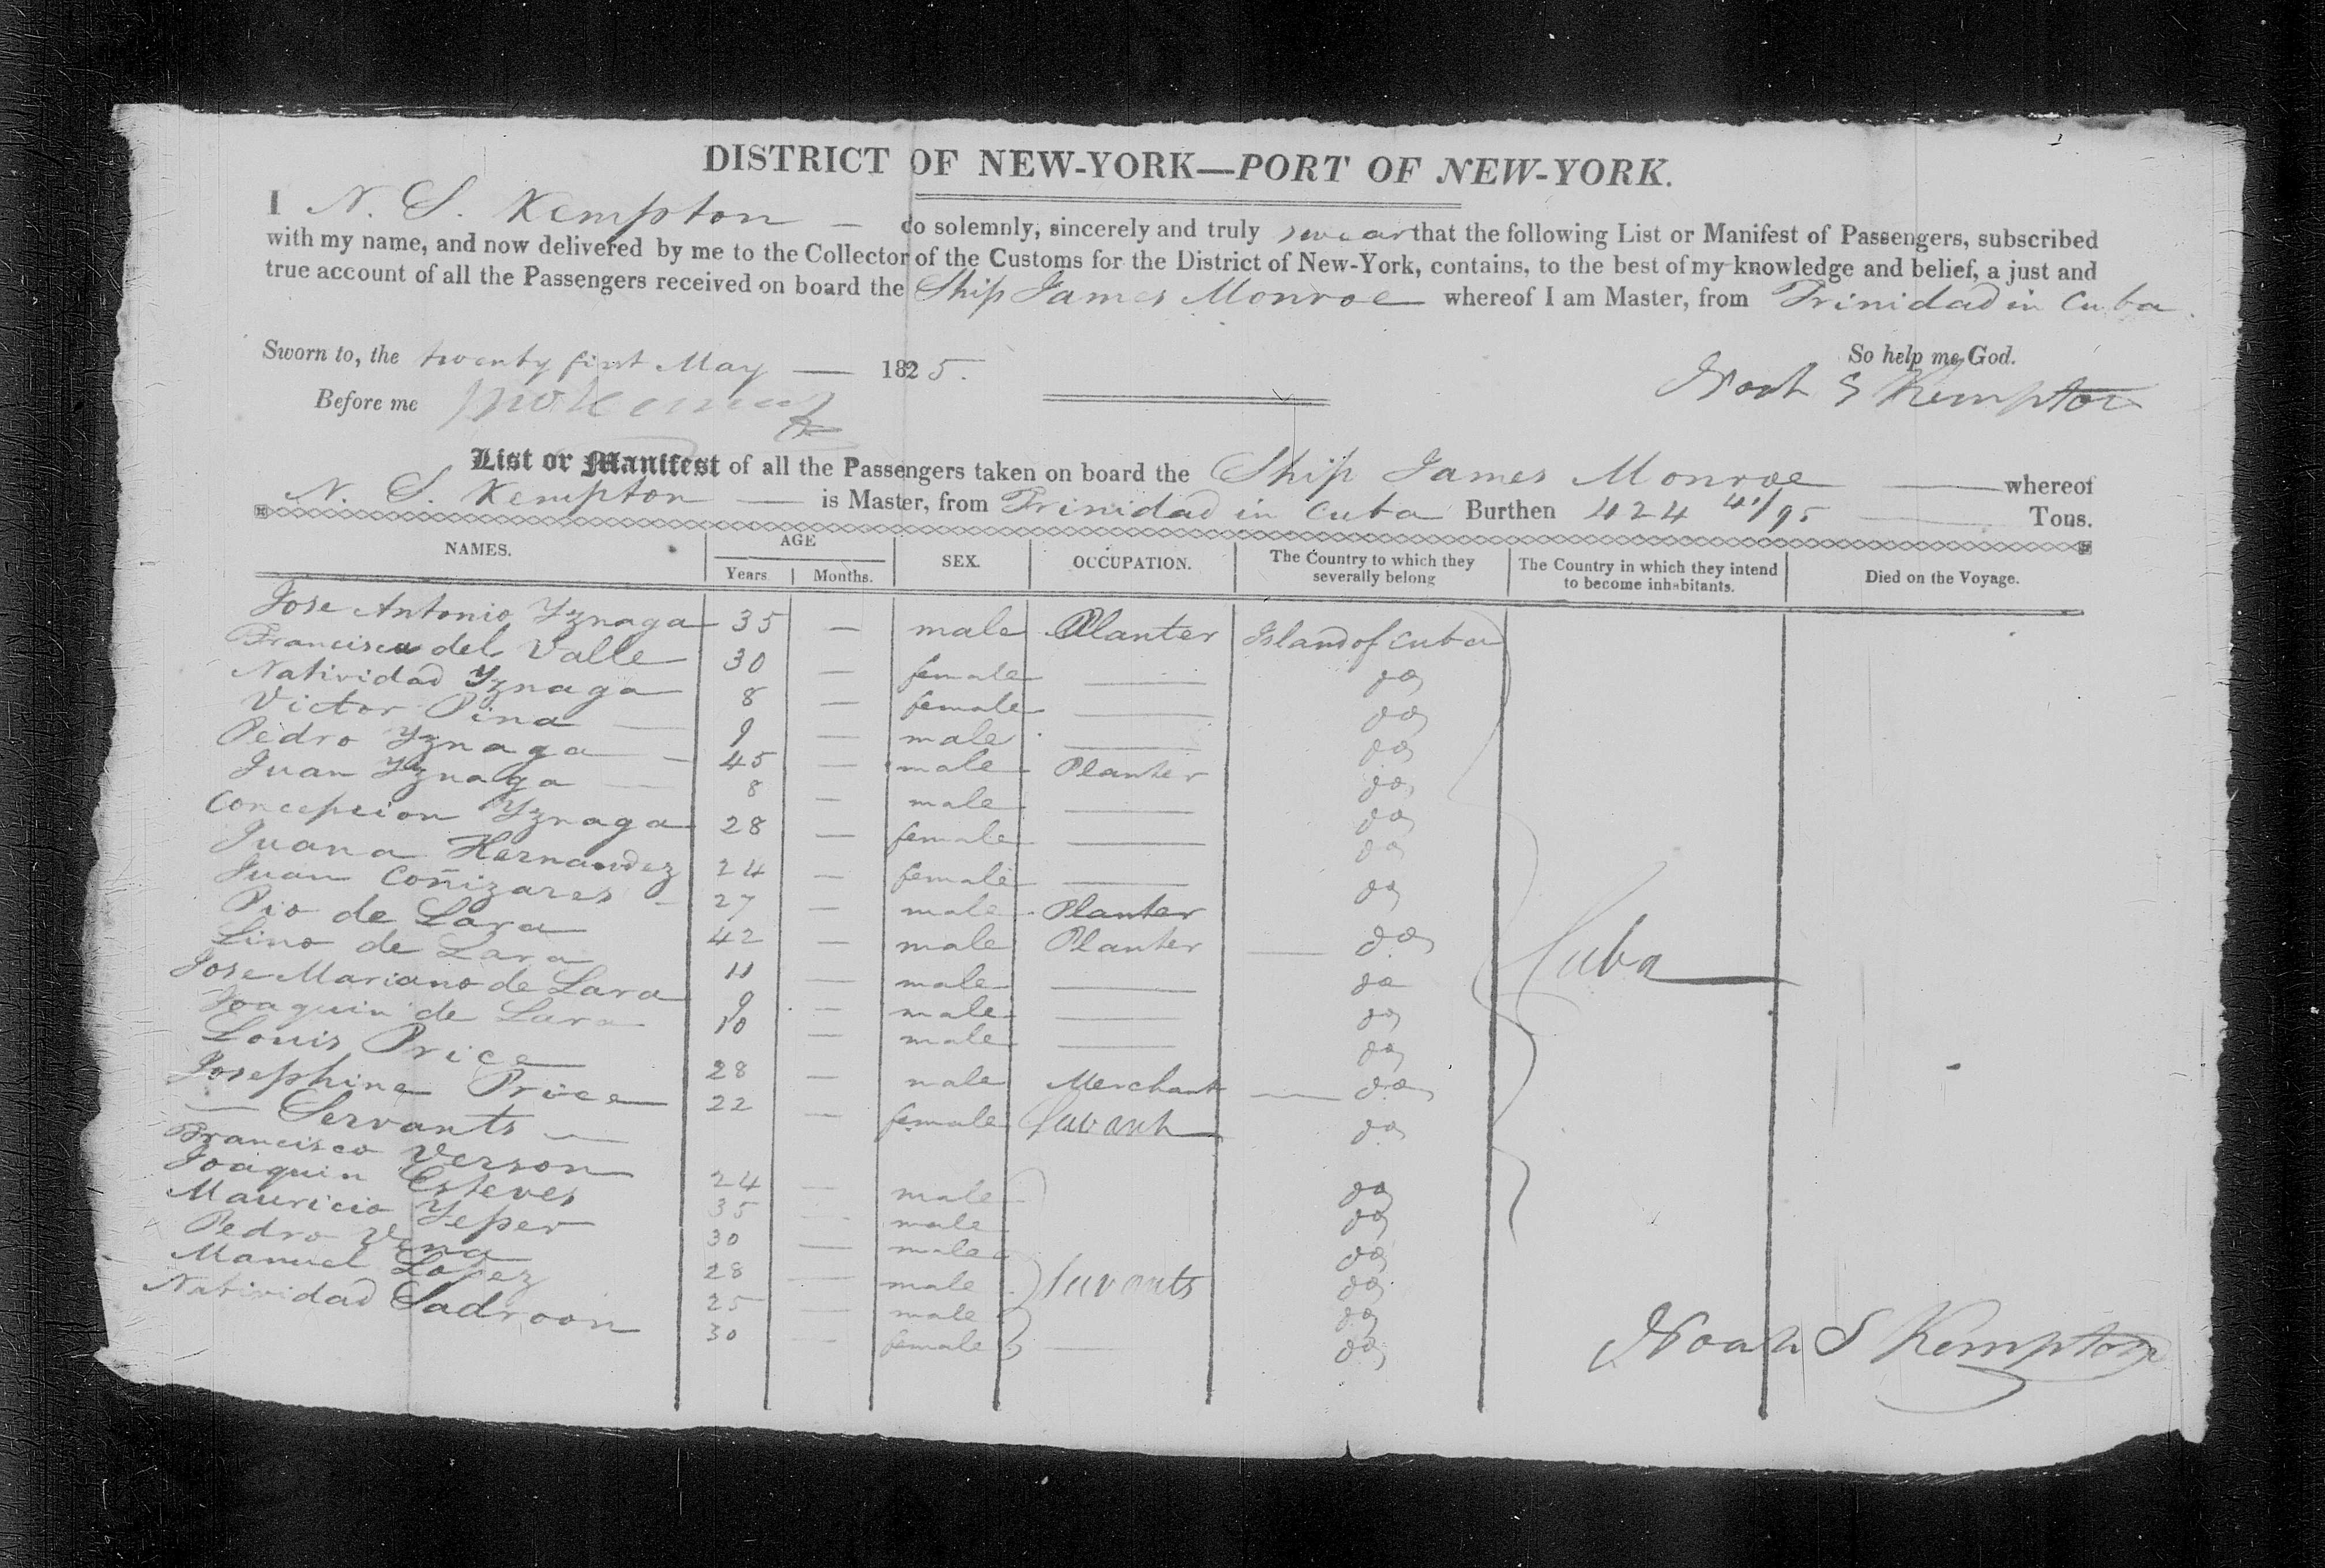 DISTRICT OF NEW-YORK—PORT OF NEW-YORK.
I N. S. Kempton — do solemnly, sincerely and truly swear that the following List or Manifest of Passengers, subscribed
with my name, and now delivered by me to the Collector of the Customs for the District of New-York, contains, to the best of my knowledge and belief, a just and
true account of all the Passengers received on board the Ship James Monroe whereof I am Master, from Trinidad in Cuba.
So help me God.
Sworn to, the twenty first May — 1825.
Noah S Kempton
Before me
List or Manifest of all the Passengers taken on board the Ship James Monroe — whereof
N. S. Kempton — is Master, from Trinidad in Cuba Burthen 424 41/95 — Tons.
NAMES. AGE Years. Months. SEX. OCCUPATION. The Country to which they severally belong The Country in which they intend to become inhabitants. Died on the Voyage.
Jose Antonio Yznaga 35 — male Planter Island of Cuba
Francisca del Valle 30 — female — do
Natividad Yznaga 8 — female — do
Victor Pina — 9 — male — do
Pedro Yznaga — 45 — male Planter do
Juan Yznaga — 8 — male — do
Concepcion Yznaga 28 — female — do
Juana Hernandez 24 — female — do
Juan Coñizares — 27 — male Planter do
Pio de Lara 42 — male Planter — do
Lino de Lara 11 — male — do
Jose Mariano de Lara 9 — male — do
Joaquin de Lara 10 — male — do
Louis Price 28 — male Merchant — do
Josephine Price 22 — female Servant do
— Servants —
Francisco Verson 24 — male do
Joaquin Esteves 35 — male do
Mauricio Yeper 30 — male do
Pedro Vena 28 — male Servants do
Manuel Lopez 25 — male do
Natividad Sadroon 30 — female — do
Cuba
Noah S Kempton